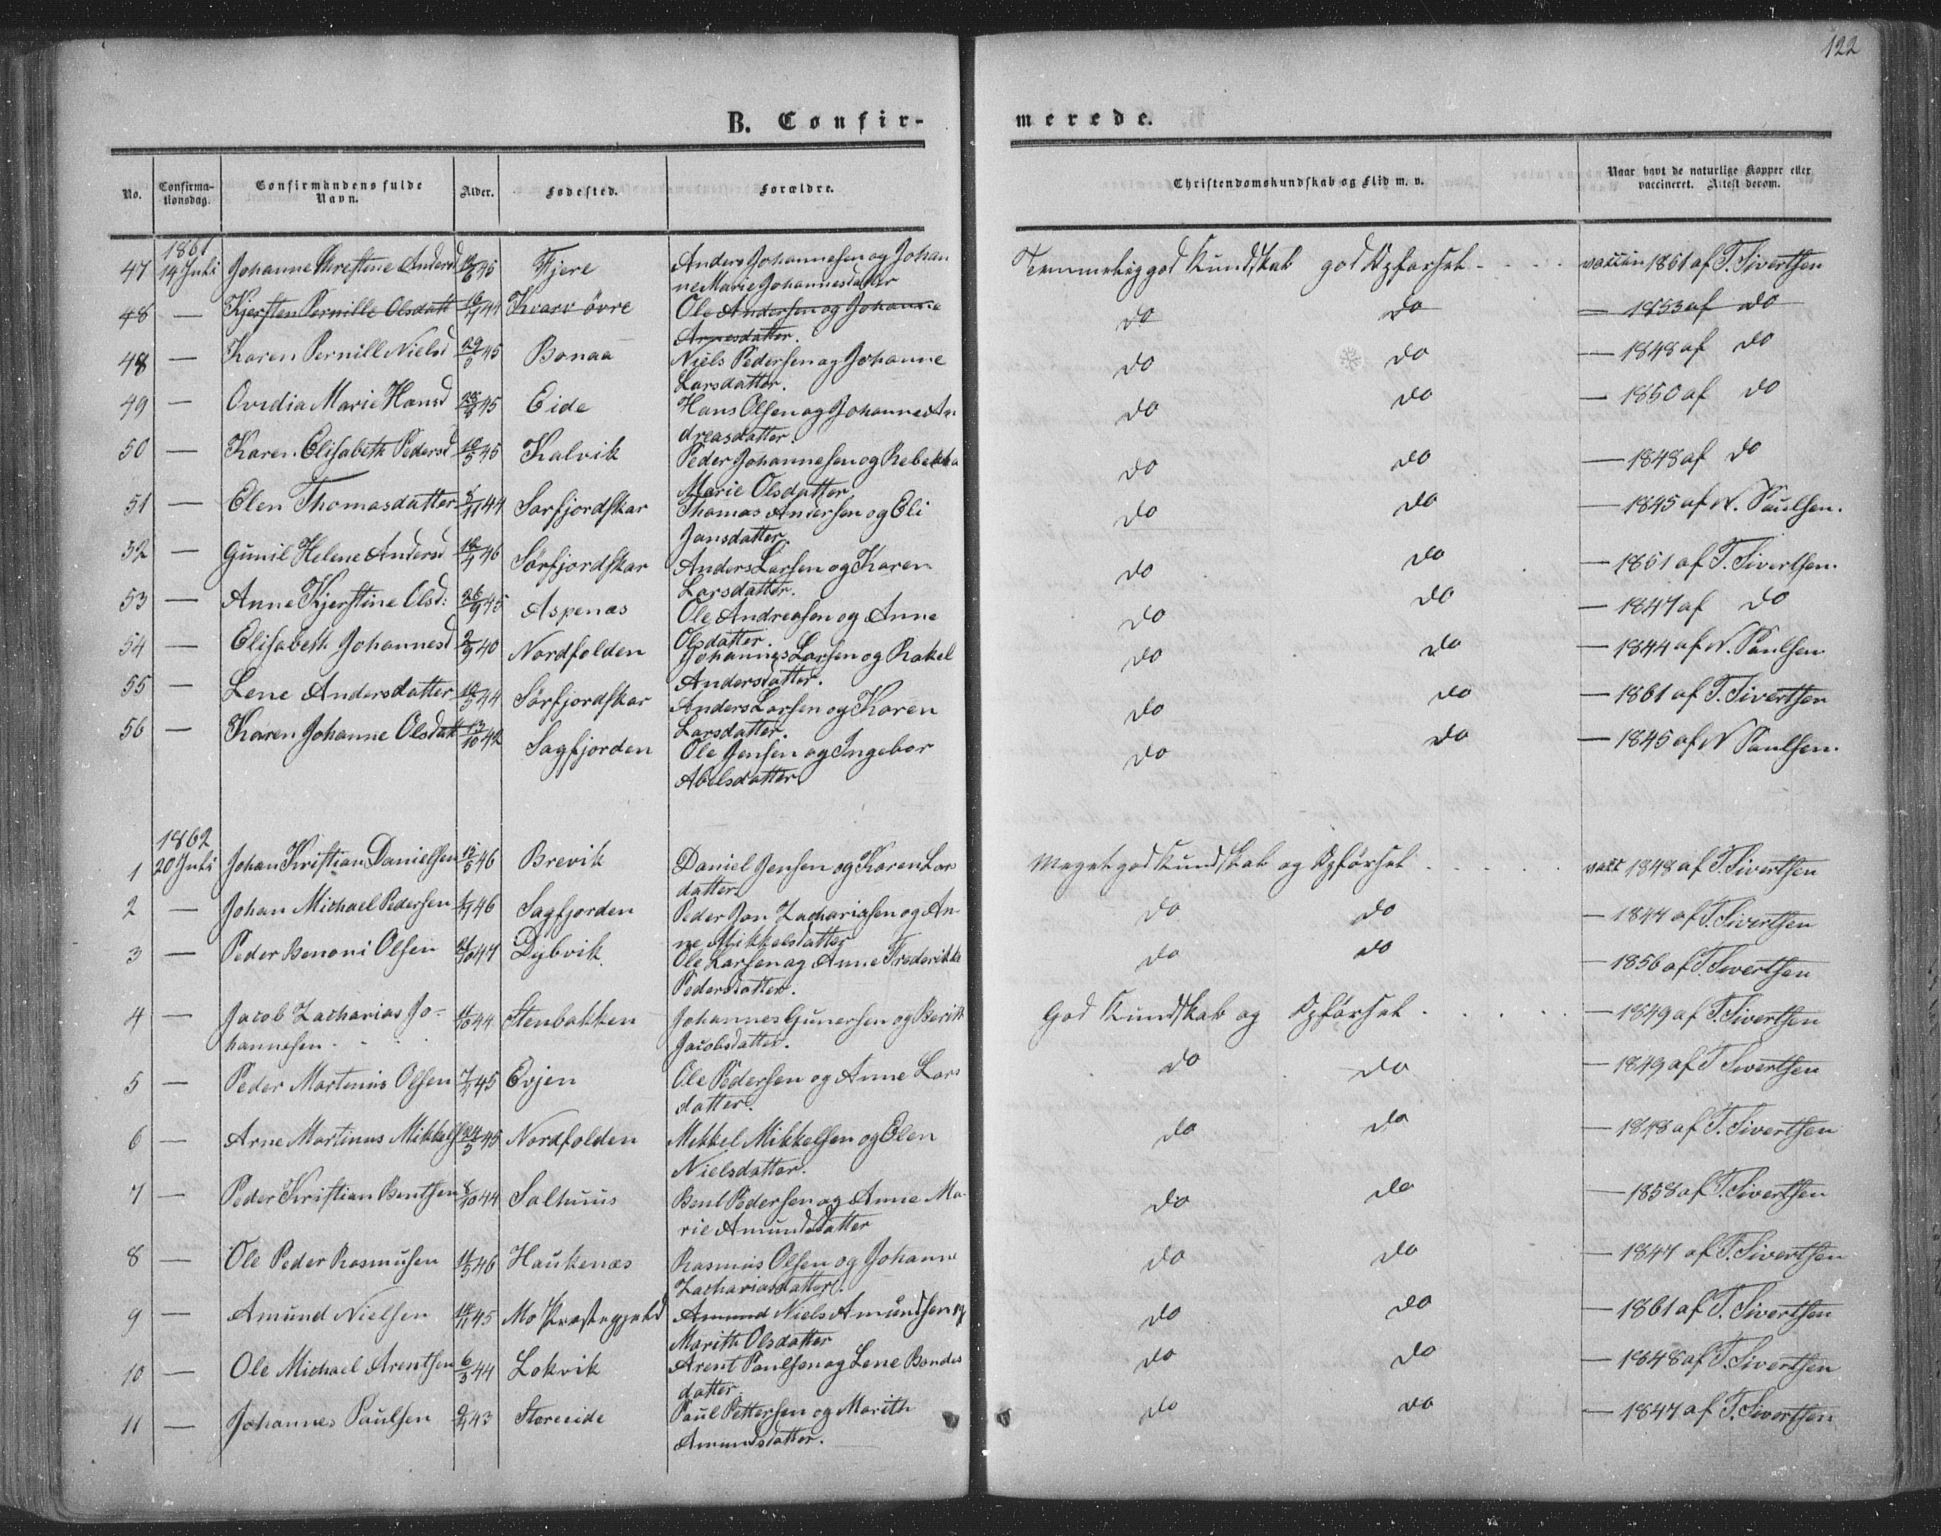 122
B. Confir-
merede.
No.
Confirma-
tionsdag.
Confirmandens fulde
Navn.
Alder.
Fødested.
Forældre.
Christendomskundskab og Flid m. v.
Naar havt de naturlige Kopper eller
vaccineret. Attest derom.
1861
47 14 Juli Johanne Christine Andersd 45 Fjere Anders Johannesen og Johan
ne Marie Johannesdatter
Temmelig god Kundskab god Opførsel vaccin 1861 af T. Sivertsen
48 — Kjersten Pernille Olsdatt 44 Kvarv övre Ole Andersen og Johanne
Arnesdatter.
do do — 1853 af do
48 — Karen Pernille Nielsd 29/5 45 Bonaa Niels Pedersen og Johanne
Larsdatter.
do do — 1848 af do
49 — Ovidia Marie Hansd 45 Eide Hans Olsen og Johanne An
dreasdatter.
do do — 1850 af do
50 — Karen Elisabeth Pedersd 45 Kalvik Peder Johannesen og Rebekka
Marie Olsdatter.
do do — 1848 af do
51 — Elen Thomasdatter 44 Sørfjordskar Thomas Andersen og Eli
Jansdatter.
do do — 1845 af N. Paulsen.
52 — Gunil Helene Andersd 46 Sørfjordskar Anders Larsen og Karen
Larsdatter.
do do — 1861 af T. Sivertsen.
53 — Anne Kjerstine Olsd: 26/9 45 Aspenæs Ole Andreasen og Anne
Olsdatter.
do do — 1847 af do
54 — Elisabeth Johannesd 2/9 40 Nordfolden Johannes Larsen og Rakel
Andersdatter.
do do — 1844 af N. Paulsen
55 — Lene Andersdatter 44 Sørfjordskar Anders Larsen og Karen
Larsdatter.
do do — 1861 af T. Sivertsen
56 — Karen Johanne Olsdatt 13/10 42 Sagfjorden Ole Jensen og Ingebor
Abelsdatter
do do — 1845 af N Paulsen.
1862
1 20 Juli Johan Kristian Danielsen 15/5 46 Brevik Daniel Jensen og Karen Lars
datter
Meget god Kundskab og Opførsel vacc 1848 af T. Sivertsen
2 — Johan Michael Pedersen 46 Sagfjorden Peder Jan Zachariasen og An-
ne Mikkelsdatter
do do — 1847 af T. Sivertsen
3 — Peder Benoni Olsen 47 Dybvik Ole Larsen og Anne Frederikke
Pedersdatter.
do do — 1856 af T. Sivertsen
4 — Jacob Zacharias Jo-
hannesen 44 Stenbakken Johannes Gunersen og Berith
Jacobsdatter.
God Kundskab og Opførsel — 1849 af T. Sivertsen
5 — Peder Martinus Olsen 45 Evjen Ole Pedersen og Anne Lars
datter.
do do — 1849 af T Sivertsen
6 — Arne Martinus Mikkels 24/5 45 Nordfolden Mikkel Mikkelsen og Elen
Nielsdatter.
do do — 1848 af T. Sivertsen
7 — Peder Kristian Bentsen 8/10 44 Salhuus Bent Pedersen og Anne Ma-
rie Amundsdatter
do do — 1858 af T. Sivertsen
8 — Ole Peder Rasmusen 46 Haukenæs Rasmus Olsen og Johanne
Zachariasdatter.
do do — 1847 af T. Sivertsen
9 — Amund Nielsen 45 Mo Præstegjeld Amund Niels Amundsen og
Marith Olsdatter
do do — 1861 af T. Sivertsen
10 — Ole Michael Arentsen 6/3 44 Lokvik Arent Paulsen og Lene Bendes
datter.
do do — 1848 af T. Sivertsen
11 — Johannes Paulsen 43 Storeide Paul Pettersen og Marith
Amundsdatter.
do do — 1847 af T. Sivertsen